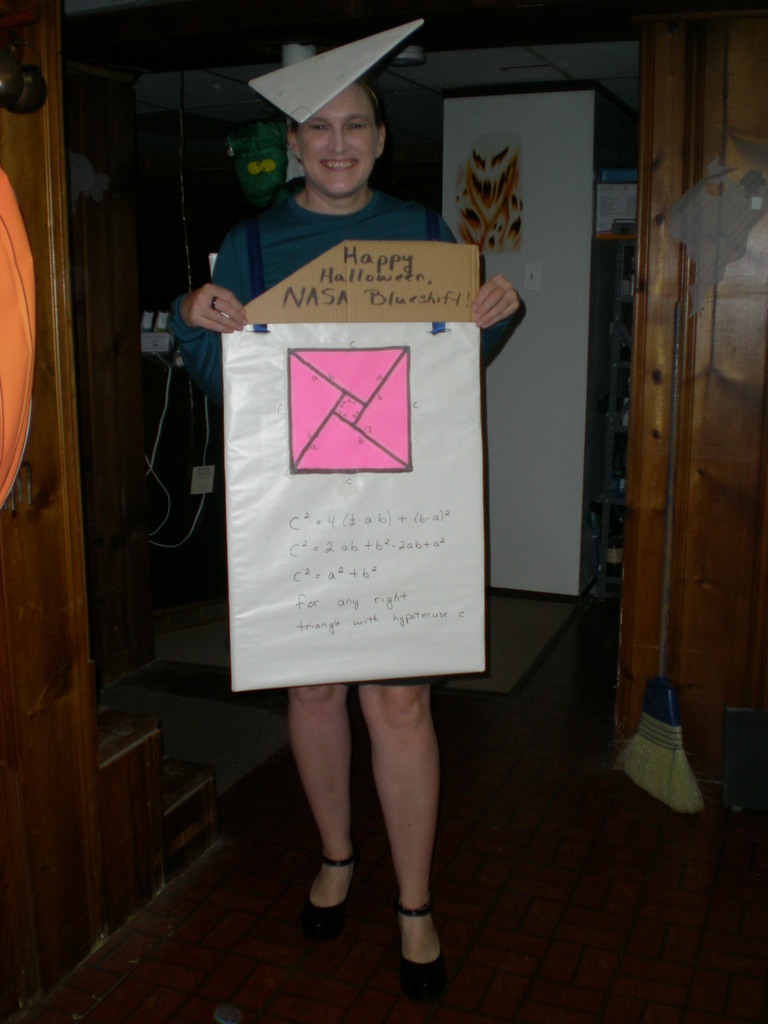 Happy
Halloween,
NASA Blueshift!
c
a b a
b
c c
a b
c
c² = 4 (½ a·b) + (b-a)²
c² = 2 ab + b² - 2ab + a²
c² = a² + b²
for any right
triangle with hypotenuse c